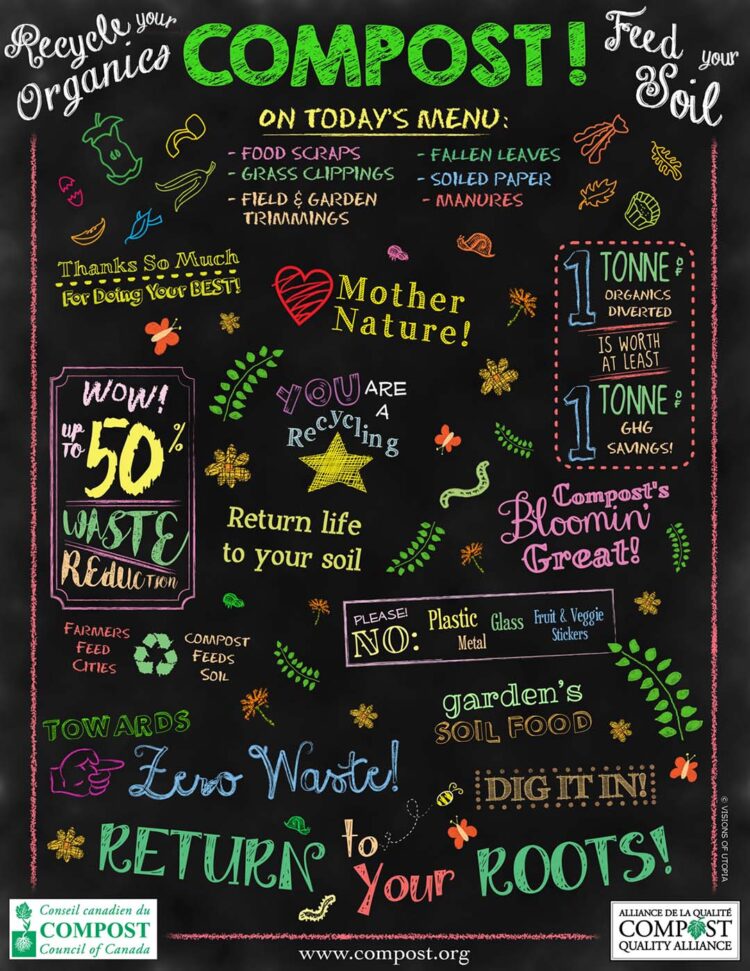 Recycle your
Organics
COMPOST!
Feed your
Soil
ON TODAY'S MENU:
- FOOD SCRAPS
- GRASS CLIPPINGS
- FIELD & GARDEN
TRIMMINGS
- FALLEN LEAVES
- SOILED PAPER
- MANURES
Thanks So Much
For Doing Your BEST!
Mother
Nature!
1 TONNE OF
ORGANICS
DIVERTED
IS WORTH
AT LEAST
1 TONNE OF
GHG
SAVINGS!
WOW!
UP TO 50%
WASTE
REDUCTION
YOU ARE
A
Recycling
Return life
to your soil
Compost's
Bloomin'
Great!
PLEASE!
NO:
Plastic
Metal
Glass
Fruit & Veggie
Stickers
FARMERS
FEED
CITIES
COMPOST
FEEDS
SOIL
TOWARDS
Zero Waste!
garden's
SOIL FOOD
DIG IT IN!
RETURN to
Your ROOTS!
© VISIONS OF UTOPIA
Conseil canadien du
COMPOST
Council of Canada
www.compost.org
ALLIANCE DE LA QUALITÉ
COMPOST
QUALITY ALLIANCE